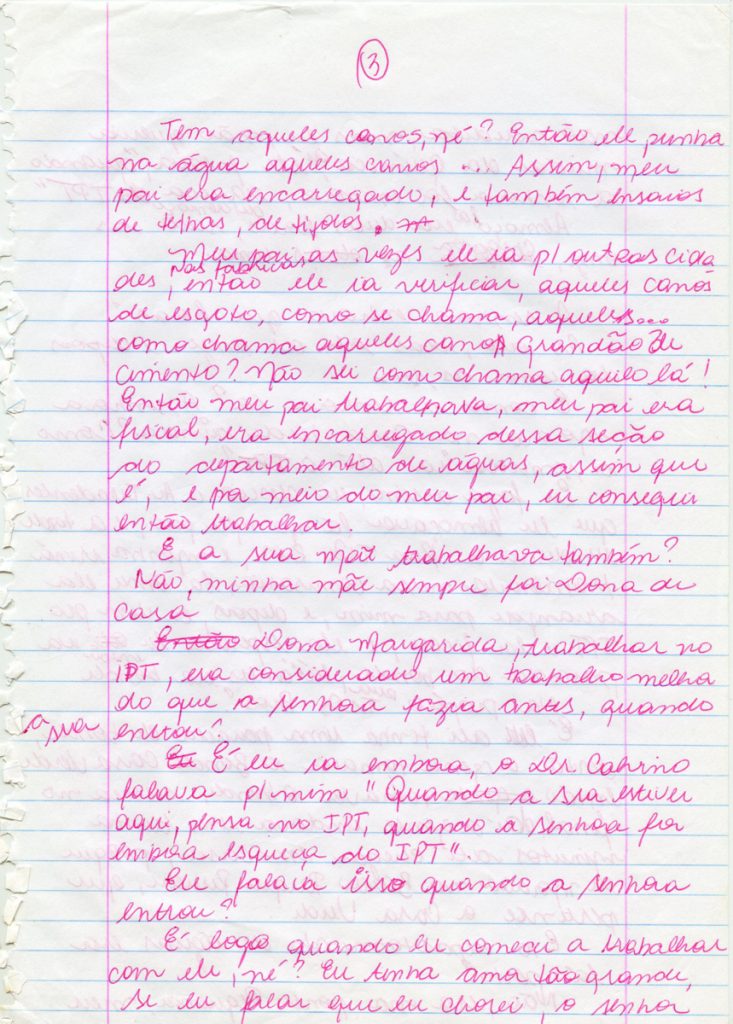 3
Tem aqueles canos, né? Então ele punha
na água aqueles canos... Assim, meu
pai era encarregado, e também ensaios
de telhas, de tijolos.
Meu pai as vezes ele ia p/ outras cida
des, nas fábricas, então ele ia verificar, aqueles canos
de esgoto, como se chama, aqueles...
como chama aqueles canos grandão de
cimento? Não sei como chama aquilo lá!
Então meu pai trabalhava, meu pai era
fiscal, era encarregado dessa seção
do departamento de águas, assim que
é, e por meio do meu pai, eu consegui
então trabalhar.
E a sua mãe trabalhava também?
Não, minha mãe sempre foi Dona de
casa
Então Dona Margarida, trabalhar no
IPT, era considerado um trabalho melhor
do que a senhora fazia antes, quando
a sua entrou?
Eu É eu ia embora, o Dr
falava p/ mim "Quando a sra estiver
aqui, pensa no IPT, quando a senhora for
embora esqueça do IPT".
Ele falava isso quando a senhora
entrou?
É logo quando eu comecei a trabalhar
com ele, né? Eu tinha ama tão grande,
se eu falar que eu chorei, o senhor